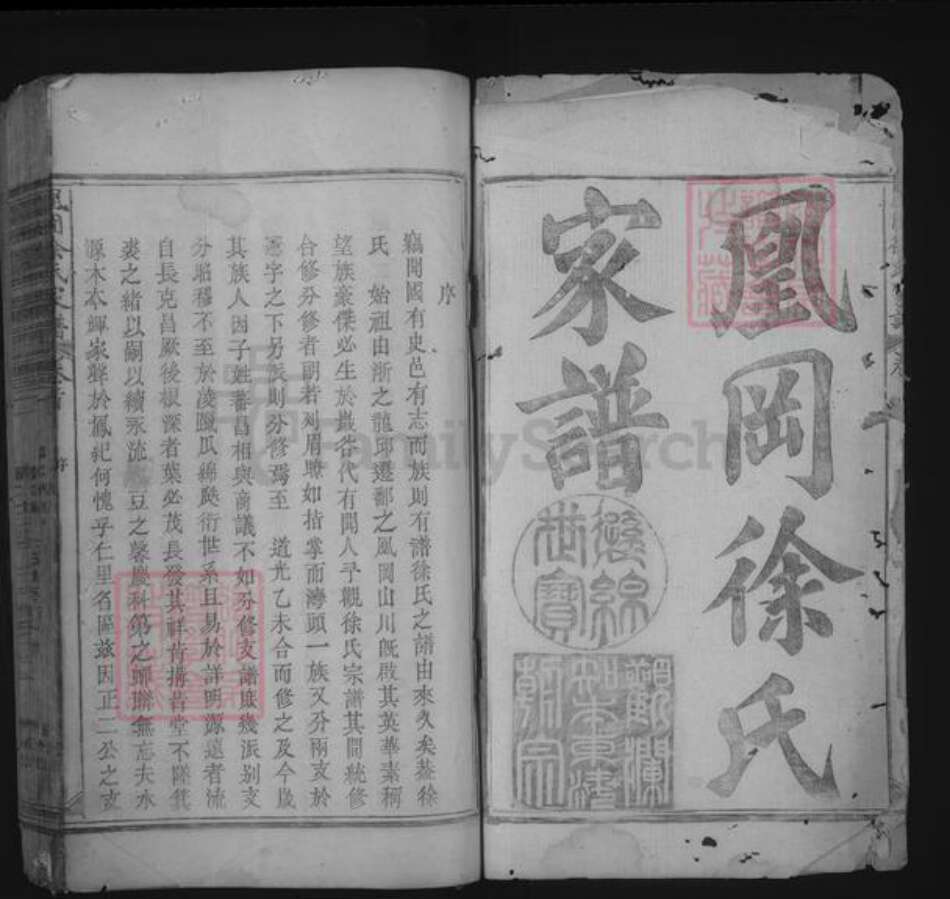 鳳岡徐氏
家譜
序
竊聞國有史邑有志而族則有譜徐氏之譜由來久矣蓋徐
氏 始祖由浙之龍邱遷鄱之鳳岡山川既啟其英華素稱
望族豪傑必生於巖谷代有聞人予觀徐氏宗譜其間統修
合修分修者副若列眉瞭如指掌而灣頭一族又分兩支於
憲字之下另派則分修焉至 道光乙未合而修之及今歲
其族人因子姓蕃昌相與商議不如分修支譜庶幾派别支
分昭穆不至於凌躐瓜綿瓞衍世系且易於詳明源遠者流
自長克昌厥後根深者葉必茂長發其祥肯構肯堂不隊箕
裘之緒以嗣以續永流 豆之馨慶科第之聯聯無忘夫水
源木本輝家聲於鳳紀何愧乎仁里名區茲因正二公之支
鳳岡徐氏家譜 卷首 序
世寶
觀瀾
FamilySearch